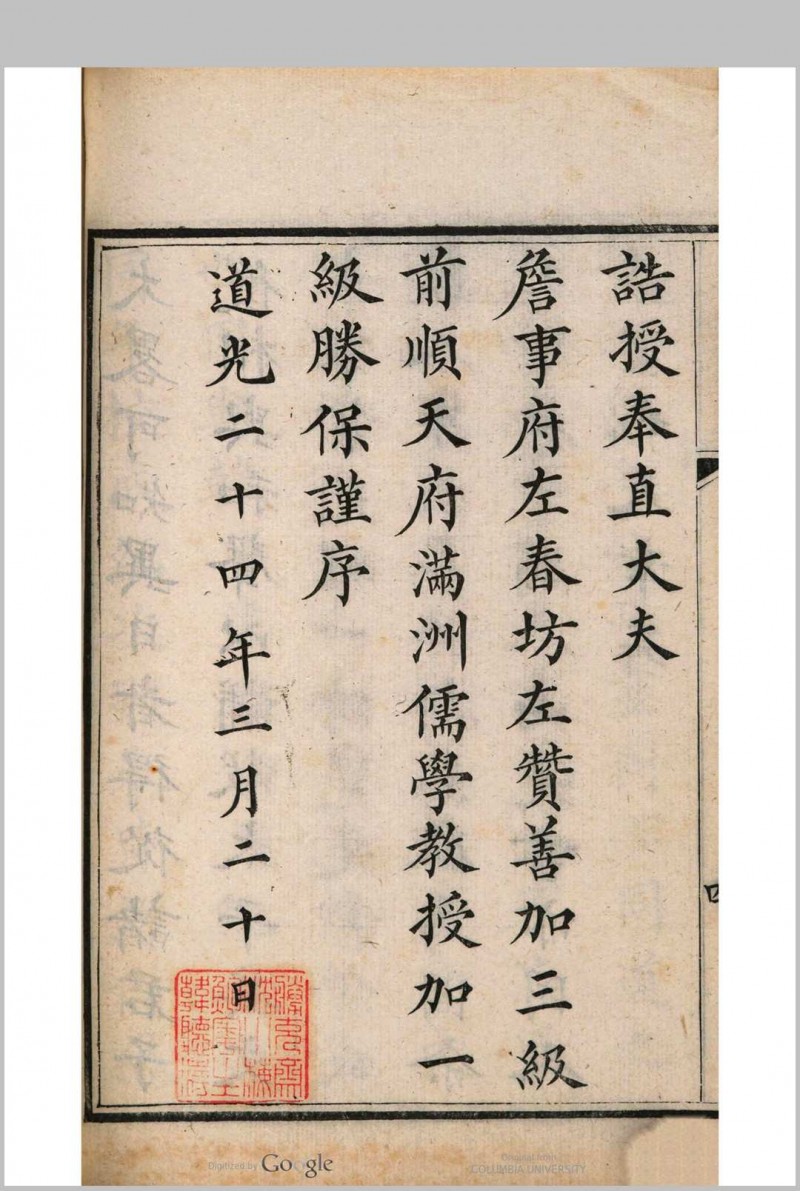 誥授奉直大夫
詹事府左春坊左贊善加三級
前順天府滿洲儒學教授加一
級勝保謹序
道光二十四年三月二十日
四
Digitized by Google
Original from
COLUMBIA UNIVERSITY